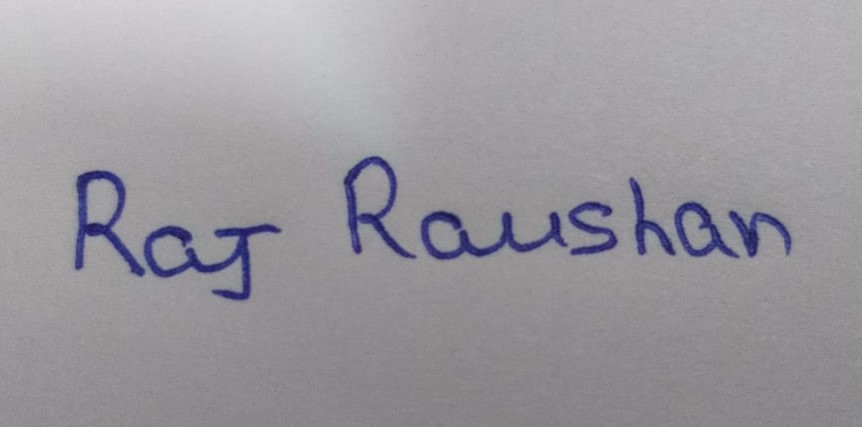 Raj Raushan